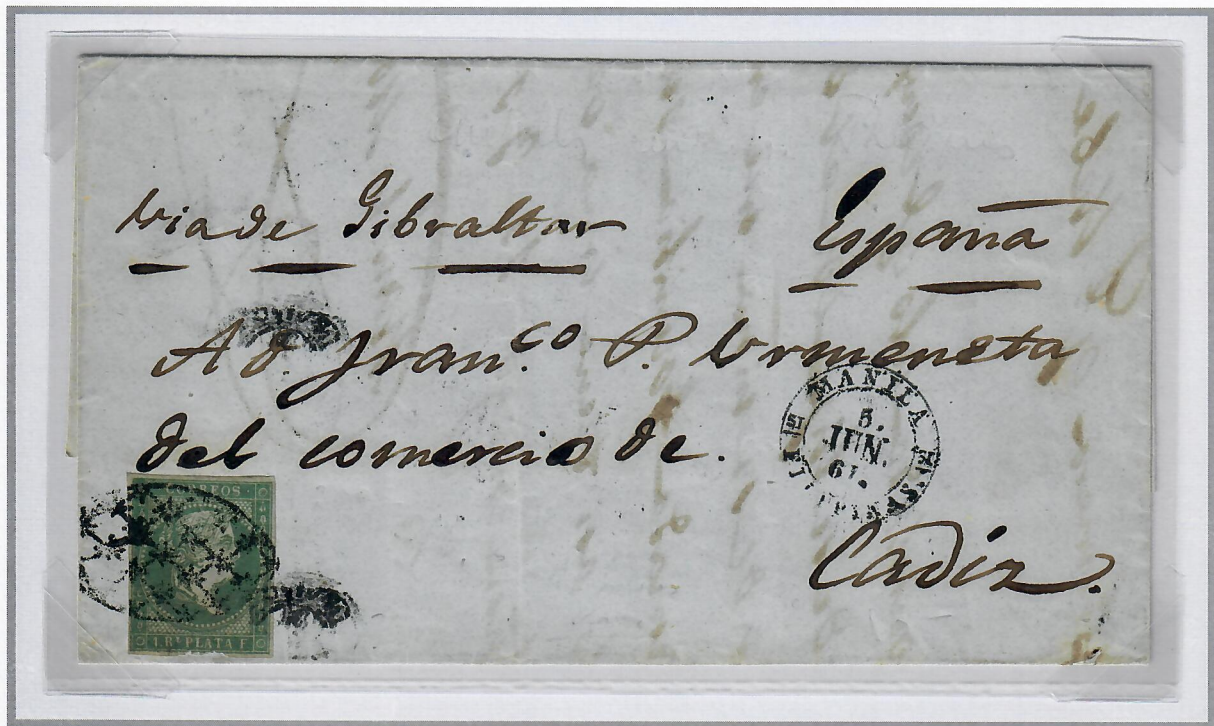 Via de Gibraltar España
A d. Fran.co P. Urmeneta
del comercio de.
MANILA
5.
JUN.
61.
CORREOS
1 Rl PLATA F
Cadiz.